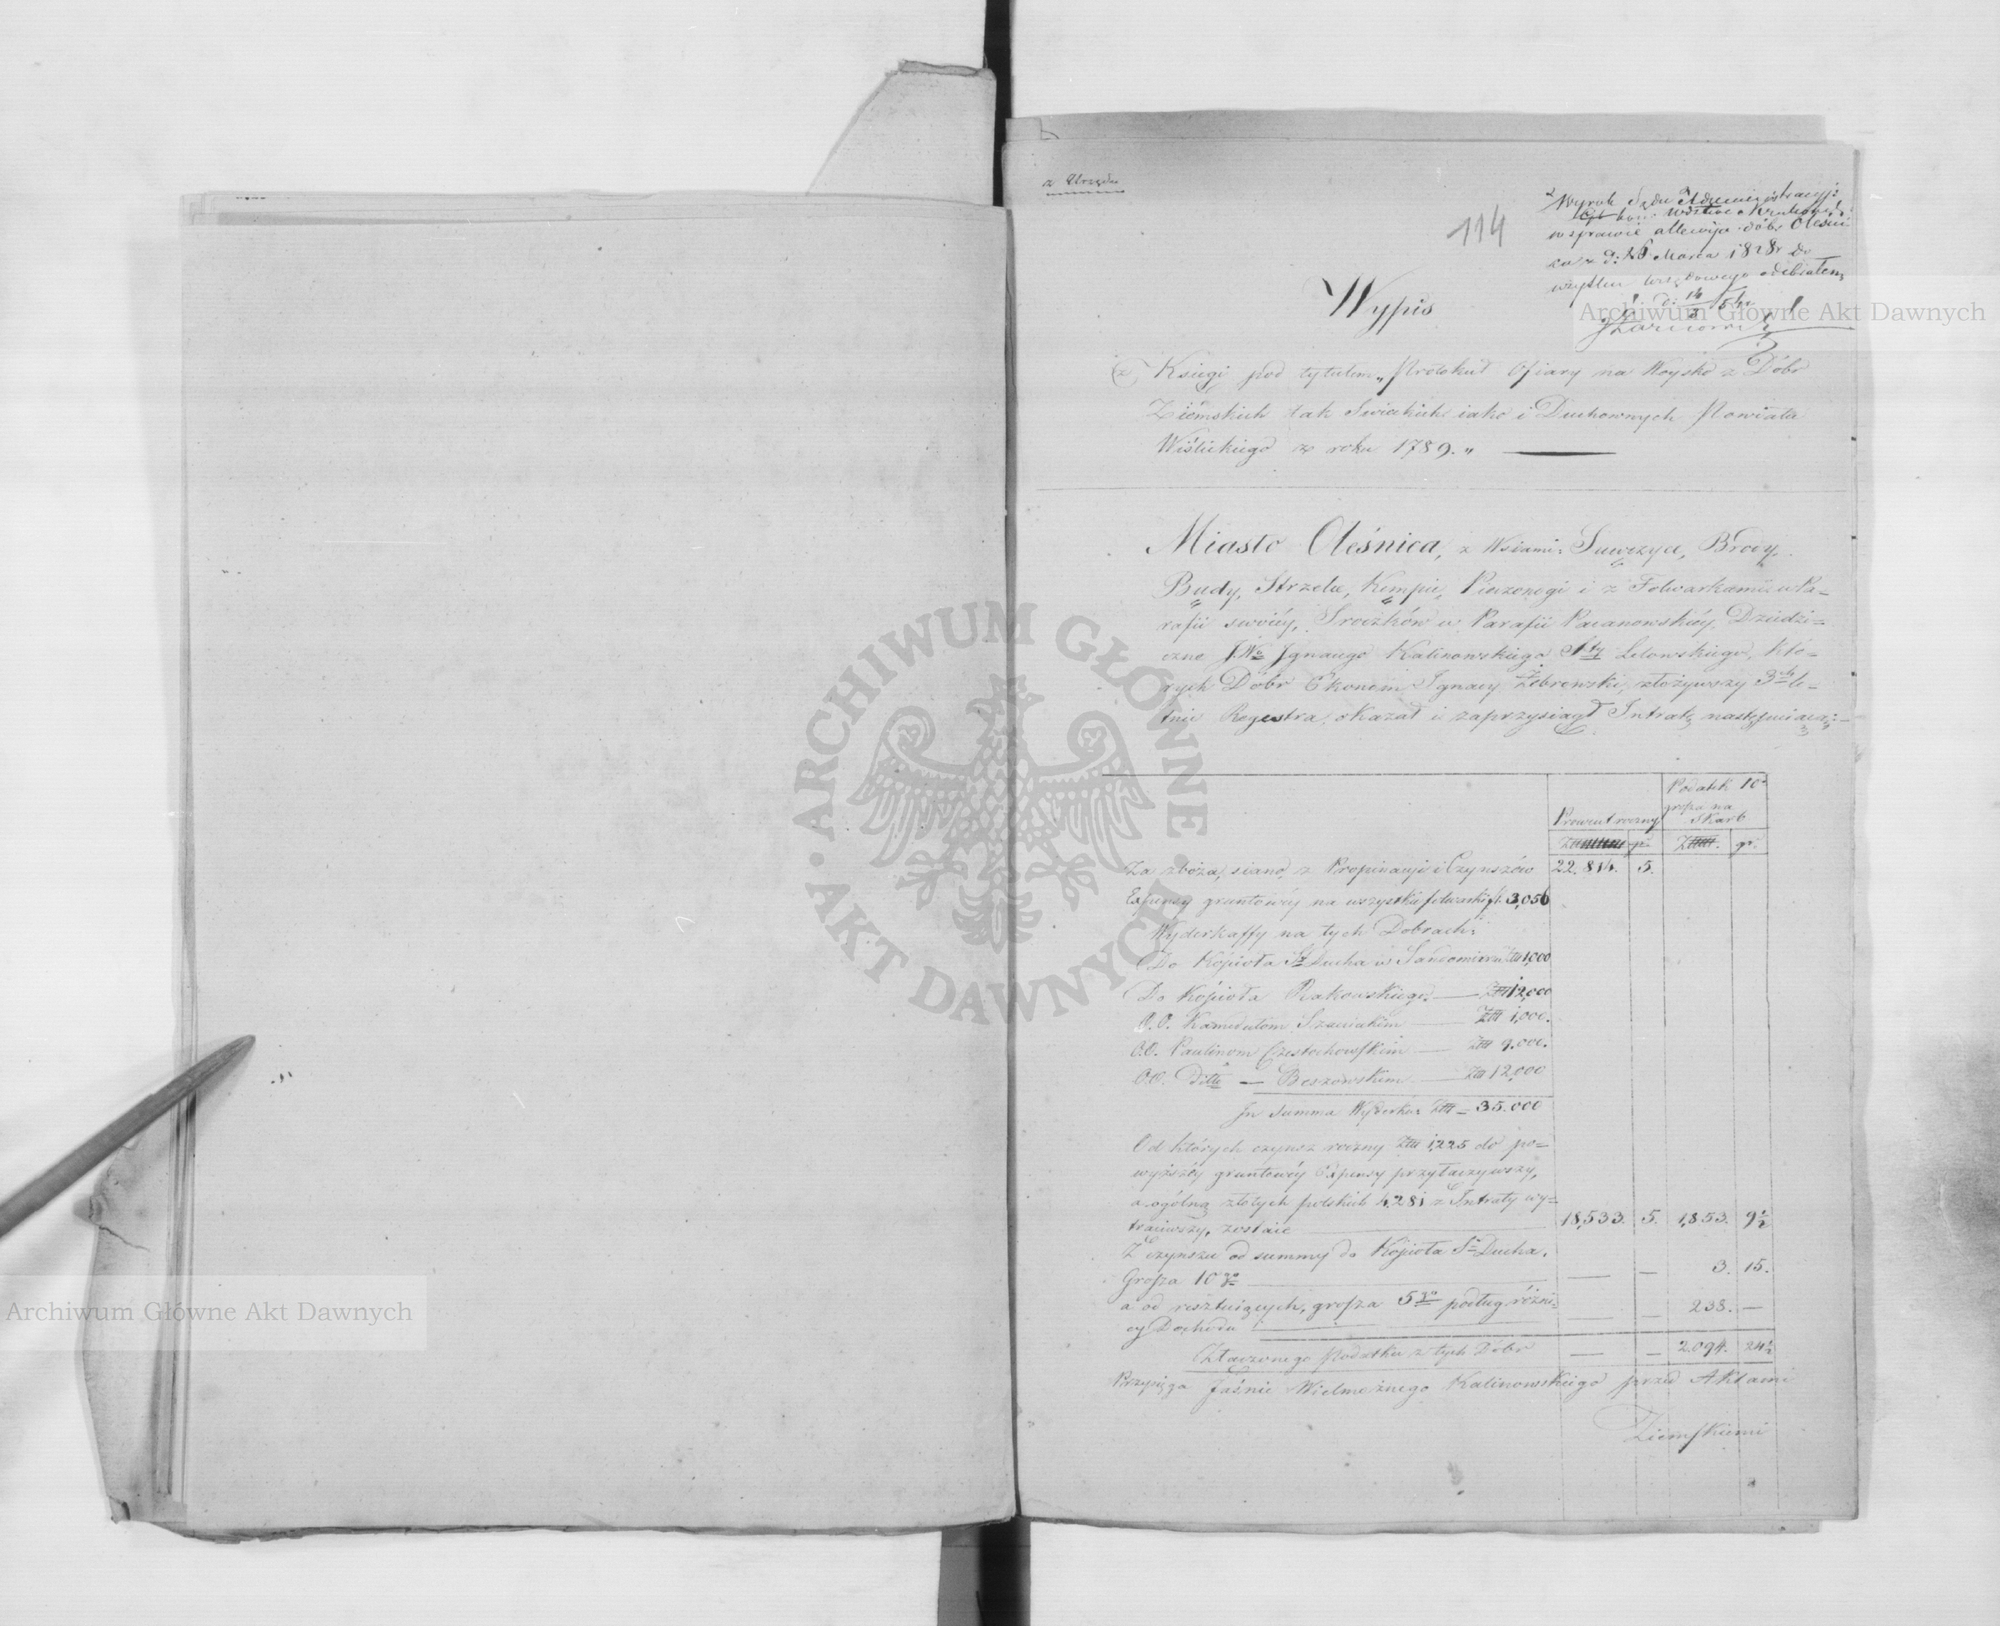 z Urzędu
114
Wyrok Sądu Administracyj:
w sprawie allewija. dóbr Oleśni-
ca z d: 26 Marca 1828 r do
użytku urzędowego odebrałem
Wypis
z Księgi pod tytułem „Protokuł Ofiary na Woysko z Dóbr
Ziemskich tak Swieckich iako i Duchownych Powiatu
Wiślickiego z roku 1789."
Miasto Oleśnica, z Wsiami: Suwczyce, Brody,
Budy, Strzelce, Kempie, Pieczonogi i z Folwarkami w Pa-
rafii swoiéy, Sroczków w Parafii Pacanowskiéy, Dziedzi-
czne JWo Jgnacego Kalinowskiego Sty Lelowskiego, któ-
rych Dóbr Ekonom Ignacy Zebrowski, złożywszy 3ch le-
tnie Regestra, okazał i zaprzysiągł Intratę następuiącą:
Prowent roczny
Podatek 10o
grosza na
Skarb
gr.
gr.
Za zboża, siano, z Propinacyi i Czynszów 22.814. 5.
Expensy gruntowéy na wszystkie folwarki fl. 3,056
Wyderkaffy na tych Dobrach:
Do Kościoła St Ducha w Sandomierzu Złłł 1,000
Do Kościoła Rakowskiego — Złłł 12,000
O.O. Kamedułom Szanieckim — Złłł 1,000.
O.O. Paulinom Częstochowskim — Złłł 9.000.
O.O. Ditto — Beszowskim — Złłł 12,000
In Summa Wyderka: Złłł — 35.000
Od których czynsz roczny Złłł 1,225 do po-
wyższéy gruntowéy Expensy przyłączywszy,
a ogólną złotych polskich 4,281 z Intraty wy-
trąciwszy, zostaie 18,533. 5. 1,853. 9½
Z Czynszu od summy do Kościoła St Ducha,
Grosza 10go — — 3. 15.
a od resztuiących, grosza 5go podług różni-
cy Dochodu — — 238. —
Złączonego Podatku z tych Dóbr — — 2.094. 24½
Przysięga Jaśnie Wielmożnego Kalinowskiego przed Aktami
Ziemskiemi
Archiwum Główne Akt Dawnych
Archiwum Główne Akt Dawnych
ARCHIWUM GŁÓWNE AKT DAWNYCH